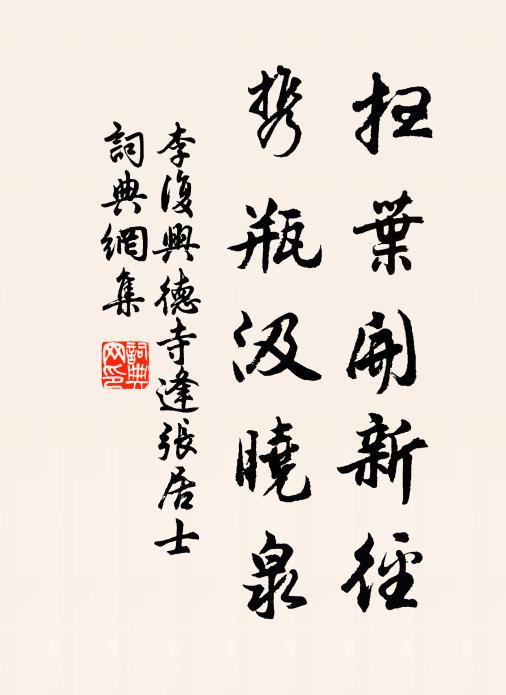 扫葉開新徑
携瓶汲曉泉
李復興德寺逢張居士
詞典網集
詞典网印